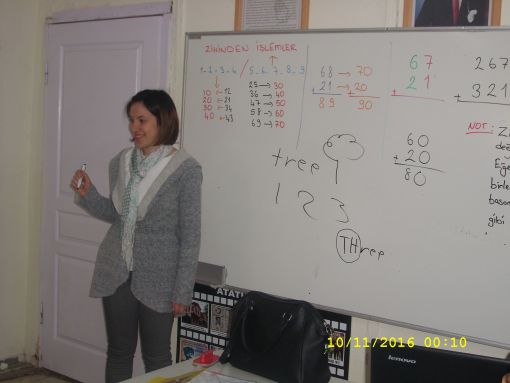 ZİHİNDEN İŞLEMLER
1-2-3-4 / 5-6-7-8-9
10 ← 12
20 ← 21
30 ← 34
40 ← 43
25 → 30
36 → 40
47 → 50
58 → 60
69 → 70
68 → 70
+ 21 → 20
89 90
67
21
+
60
+ 20
80
267
+ 321
NOT: Z
değ
Eğe
birle
basam
gibi
tree
1 2 3
THree
ATAT
10/11/2016 00:10
lenovo